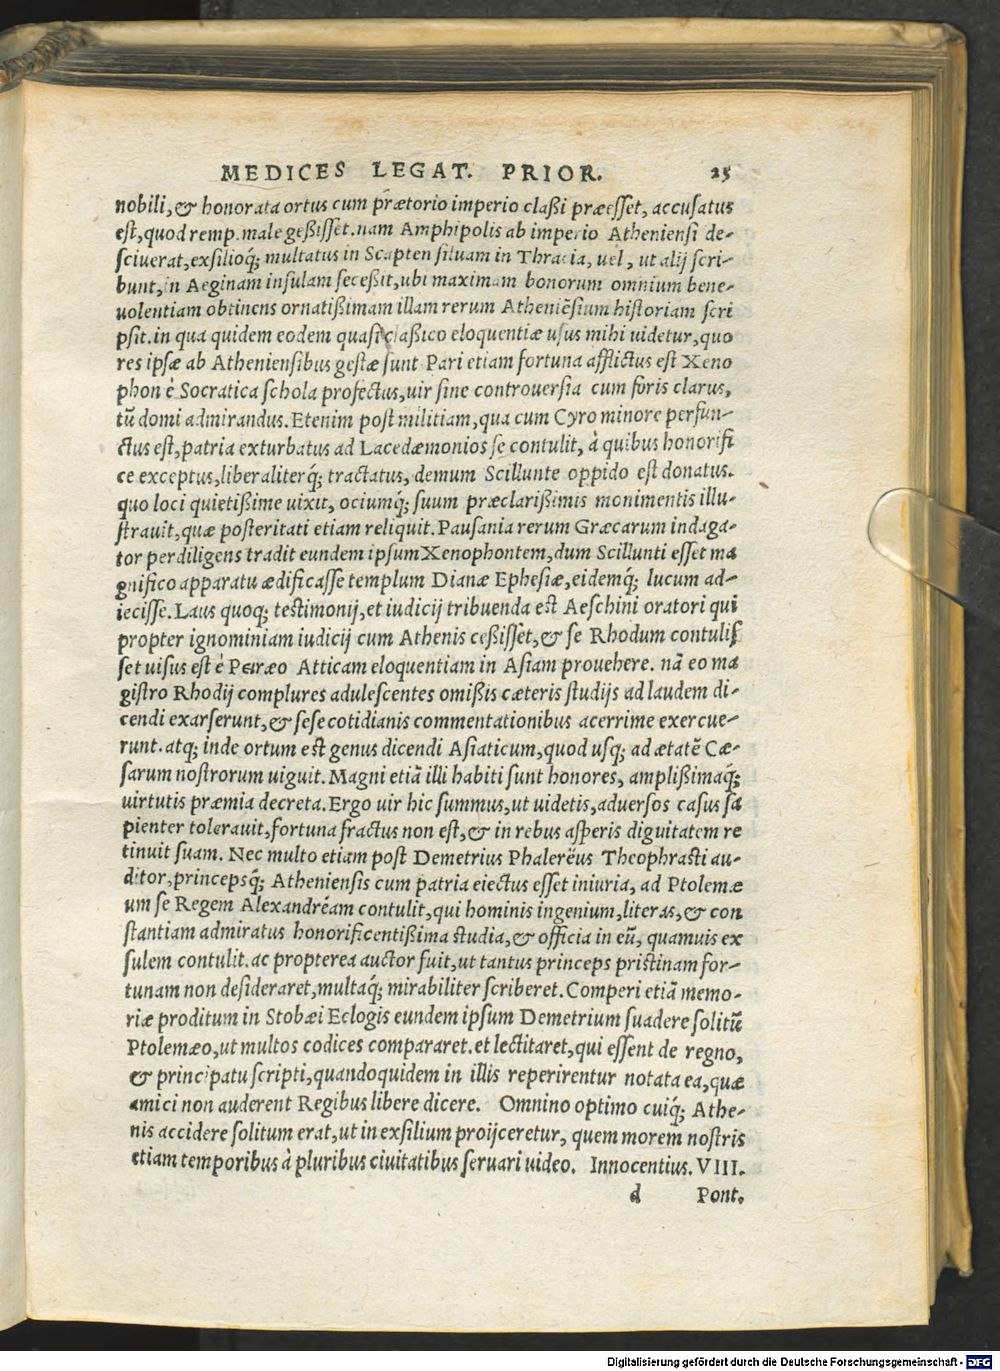 MEDICES LEGAT. PRIOR. 25
nobili, & honorata ortus cum prætorio imperio claßi præesset, accusatus
est, quod remp. male geßisset. nam Amphipolis ab imperio Atheniensi de-
sciuerat, exsilioq; multatus in Scapten siluam in Thracia, uel, ut alij scri-
bunt, in Aeginam insulam seceßit, ubi maximam bonorum omnium bene-
uolentiam obtinens ornatißimam illam rerum Atheniēsium historiam scri
psit. in qua quidem eodem quasi claßico eloquentiæ usus mihi uidetur, quo
res ipsæ ab Atheniensibus gestæ sunt Pari etiam fortuna afflictus est Xeno
phon è Socratica schola profectus, uir sine controuersia cum foris clarus,
tū domi admirandus. Etenim post militiam, qua cum Cyro minore perfun-
ctus est, patria exturbatus ad Lacedæmonios se contulit, à quibus honorifi
ce exceptus, liberaliterq́; tractatus, demum Scillunte oppido est donatus.
quo loci quietißime uixit, ociumq́; suum præclarißimis monimentis illu-
strauit, quæ posteritati etiam reliquit. Pausania rerum Græcarum indaga-
tor perdiligens tradit eundem ipsum Xenophontem, dum Scillunti esset ma
gnifico apparatu ædificasse templum Dianæ Ephesiæ, eidemq́; lucum ad-
iecisse. Laus quoq; testimonij, et iudicij tribuenda est Aeschini oratori qui
propter ignominiam iudicij cum Athenis ceßisset, & se Rhodum contulis
set uisus est è Peiræo Atticam eloquentiam in Asiam prouehere. nā eo ma
gistro Rhodij complures adulescentes omißis cæteris studijs ad laudem di-
cendi exarserunt, & sese cotidianis commentationibus acerrime exercue-
runt. atq; inde ortum est genus dicendi Asiaticum, quod usq; ad ætatē Cæ-
sarum nostrorum uiguit. Magni etiā illi habiti sunt honores, amplißimaq́;
uirtutis præmia decreta. Ergo uir hic summus, ut uidetis, aduersos casus sa
pienter tolerauit, fortuna fractus non est, & in rebus asperis dignitatem re
tinuit suam. Nec multo etiam post Demetrius Phalerëus Theophrasti au-
ditor, princepsq́; Atheniensis cum patria eiectus esset iniuria, ad Ptolemæ
um se Regem Alexandréam contulit, qui hominis ingenium, literas, & con
stantiam admiratus honorificentißima studia, & officia in eū, quamuis ex
sulem contulit. ac propterea auctor fuit, ut tantus princeps pristinam for-
tunam non desideraret, multaq́; mirabiliter scriberet. Comperi etiā memo-
riæ proditum in Stobæi Eclogis eundem ipsum Demetrium suadere solitū
Ptolemæo, ut multos codices compararet. et lectitaret, qui essent de regno,
& principatu scripti, quandoquidem in illis reperirentur notata ea, quæ
amici non auderent Regibus libere dicere. Omnino optimo cuiq́; Athe-
nis accidere solitum erat, ut in exsilium proijceretur, quem morem nostris
etiam temporibus à pluribus ciuitatibus seruari uideo. Innocentius. VIII.
d Pont.
Digitalisierung gefördert durch die Deutsche Forschungsgemeinschaft - DFG